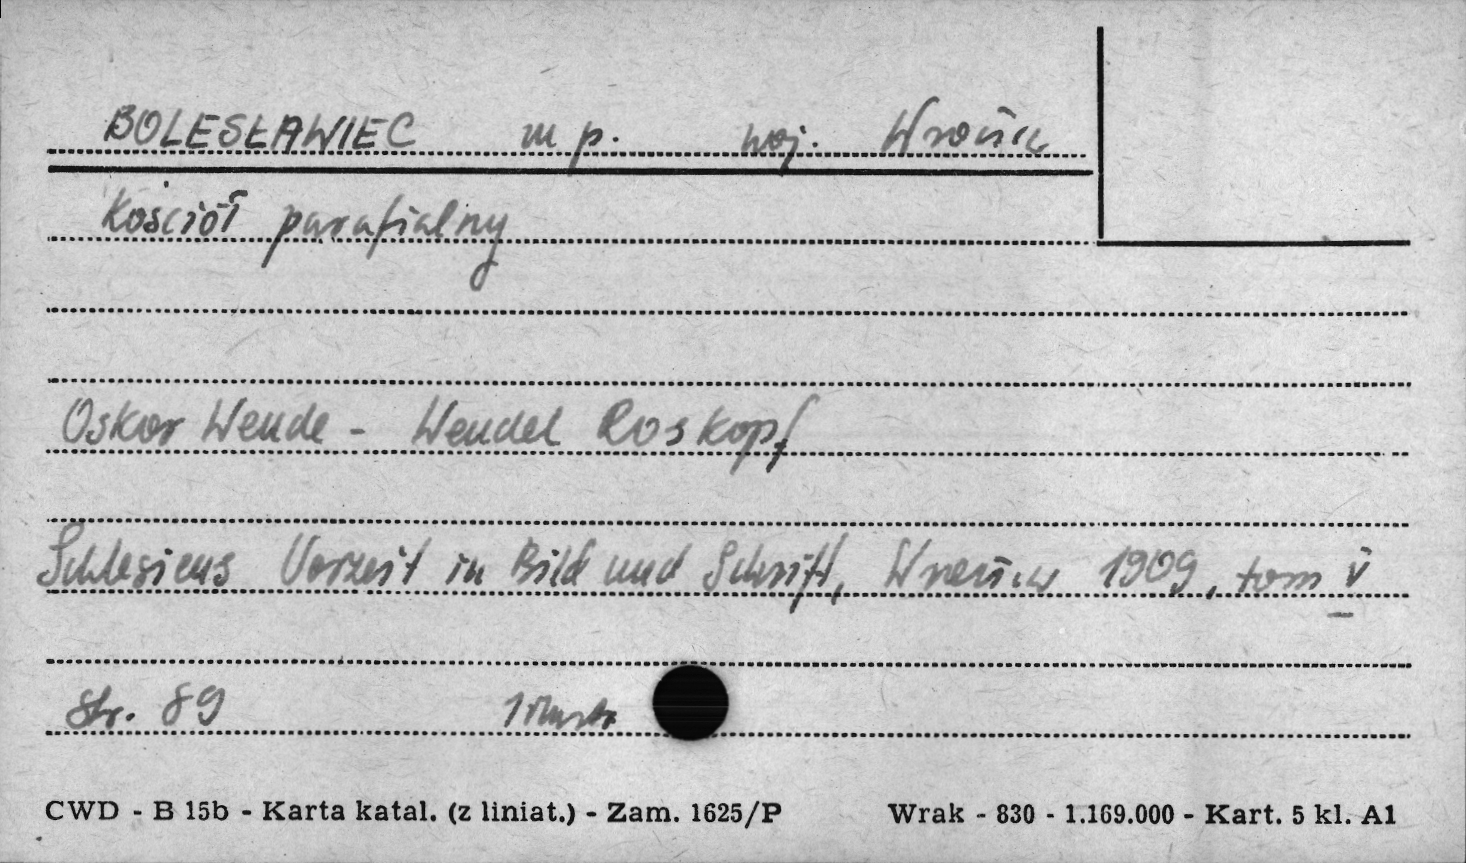 BOLESŁAWIEC m p. woj. Wrocław
Kościół parafialny
Oskar Wende - Wendel Roskopf
Schlesiens Vorzeit in Bild und Schrift, Wrocław 1909, tom V
Str. 89 1 ilustr.
CWD - B 15b - Karta katal. (z liniat.) - Zam. 1625/P Wrak - 830 - 1.169.000 - Kart. 5 kl. A1